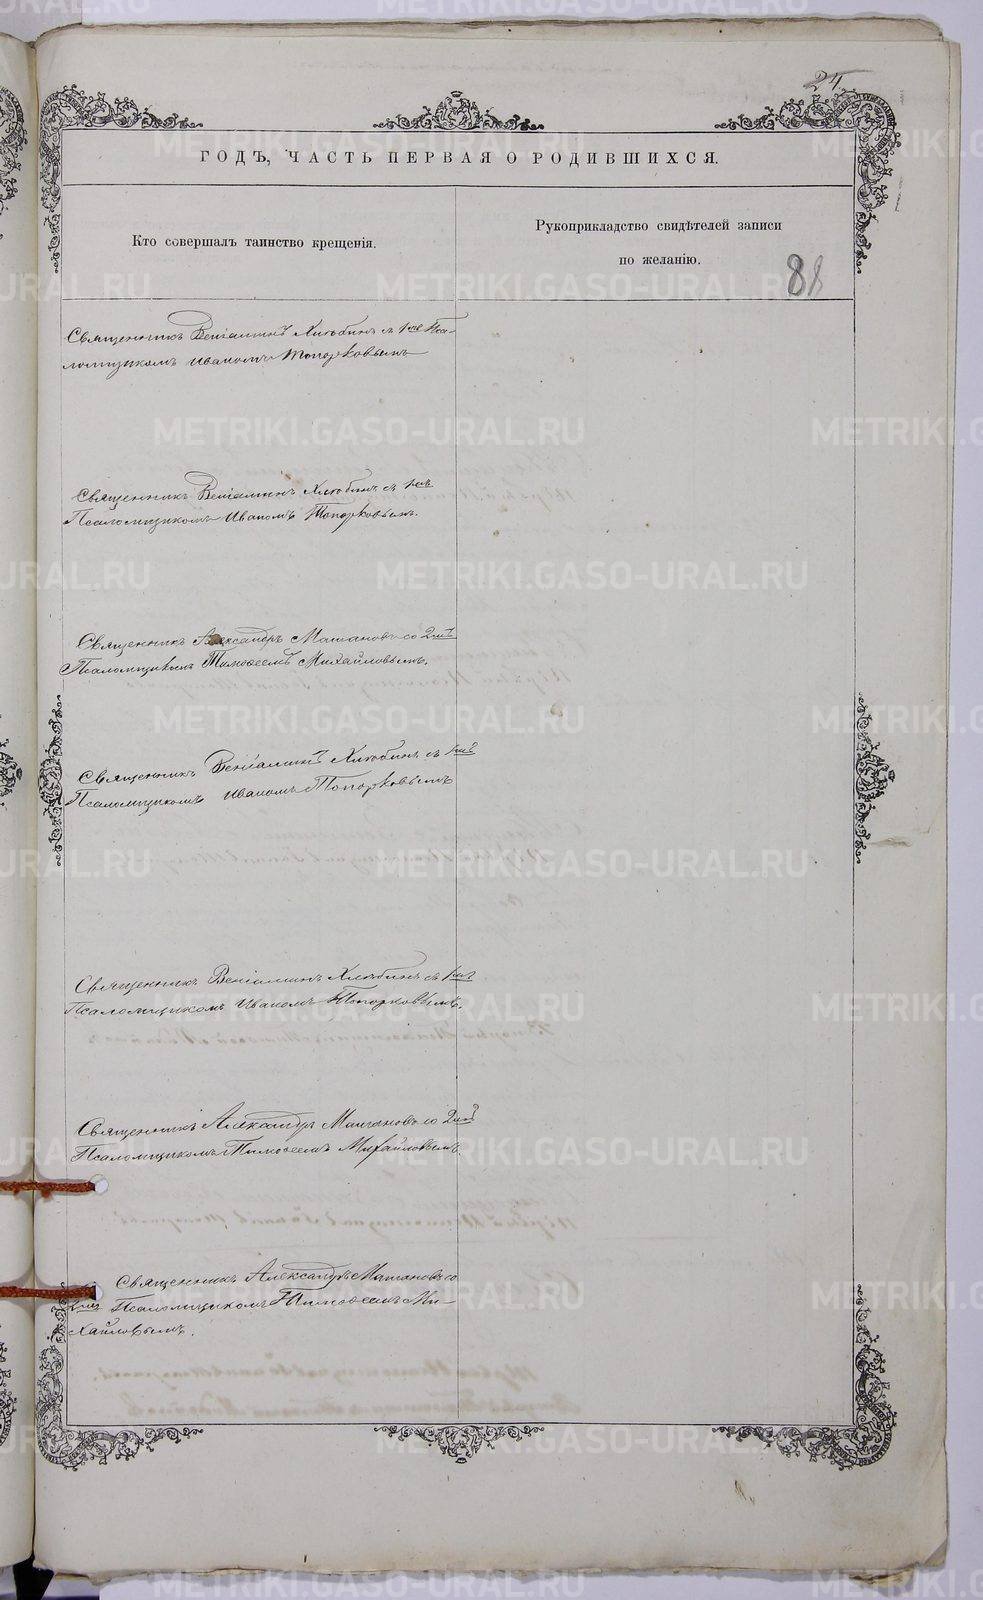 24
ГОДЪ, ЧАСТЬ ПЕРВАЯ О РОДИВШИХСЯ.
Кто совершалъ таинство крещенія.
Рукоприкладство свидѣтелей записи
по желанію.
88
Священникъ Веніаминъ Хлюбинъ съ 1мъ Пса-
ломщикомъ Иваномъ Топорковымъ
Священникъ Веніаминъ Хлюбинъ съ 1мъ
Псаломщикомъ Иваномъ Топорковымъ.
Священникъ Александръ Матановъ со 2мъ
Псаломщикомъ Тимоѳеемъ Михайловымъ.
Священникъ Веніаминъ Хлюбинъ съ 1мъ
Псаломщикомъ Иваномъ Топорковымъ
Священникъ Веніаминъ Хлюбинъ съ 1мъ
Псаломщикомъ Иваномъ Топорковымъ.
Священникъ Александръ Матановъ со 2мъ
Псаломщикомъ Тимоѳеемъ Михайловымъ.
Священникъ Александръ Матановъ со
2мъ Псаломщикомъ Тимоѳеемъ Ми-
хайловымъ.
METRIKI.GASO-URAL.RU